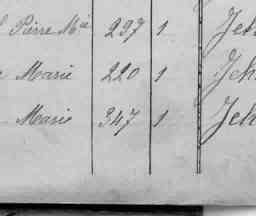 Pierre Mie 297 1 Jeh
Marie 220 1 Jeh
Marie 347 1 Jeh